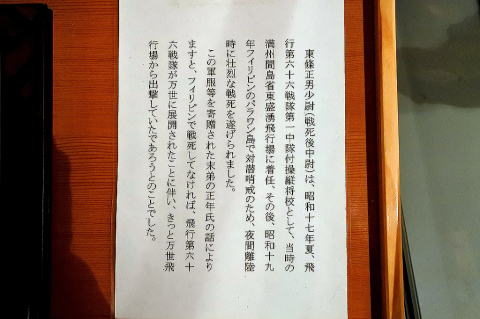 東條正男少尉(戦死後中尉)は、昭和十七年夏、飛
行第六十六戦隊第一中隊付操縦将校として、当時の
満州間島省東盛湧飛行場に着任、その後、昭和十九
年フィリピンのパラワン島で対潜哨戒のため、夜間離陸
時に壮烈な戦死を遂げられました。
この軍服等を寄贈された末弟の正年氏の話により
ますと、フィリピンで戦死してなければ、飛行第六十
六戦隊が万世に展開されたことに伴い、きっと万世飛
行場から出撃していたであろうとのことでした。